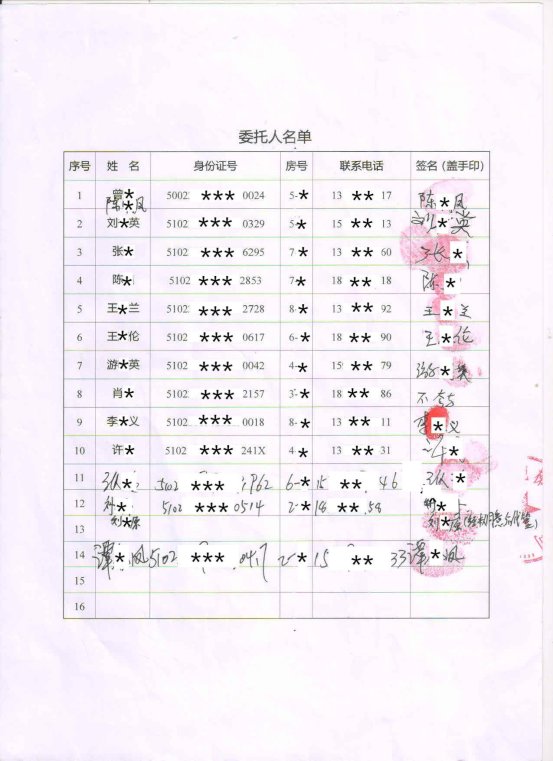 委托人名单
序号 姓 名 身份证号 房号 联系电话 签名（盖手印）
1 曾* 5002 *** 0024 5-* 13 ** 17 陈*凤
陈*凤
2 刘*英 5102 *** 0329 5-* 15 ** 13 刘*英
3 张* 5102 *** 6295 7-* 13 ** 60 张*
4 陈* 5102 *** 2853 7-* 18 ** 18 陈*
5 王*兰 5102 *** 2728 8-* 13 ** 92 王*兰
6 王*伦 5102 *** 0617 6-* 18 ** 90 王*伦
7 游*英 5102 *** 0042 4-* 15 ** 79 游*英
8 肖* 5102 *** 2157 3-* 18 ** 86
9 李*义 5102 *** 0018 8-* 13 ** 11 李*义
10 许* 5102 *** 241X 4-* 13 ** 31 *
11 * 5102 *** 1962 6-* 15 ** 46 *
12 * 5102 *** 0514 2-* 18 ** 58 *
13 刘* 刘*
14 谭*凤 5102 *** 0417 2-* 15 ** 33 谭*凤
15
16